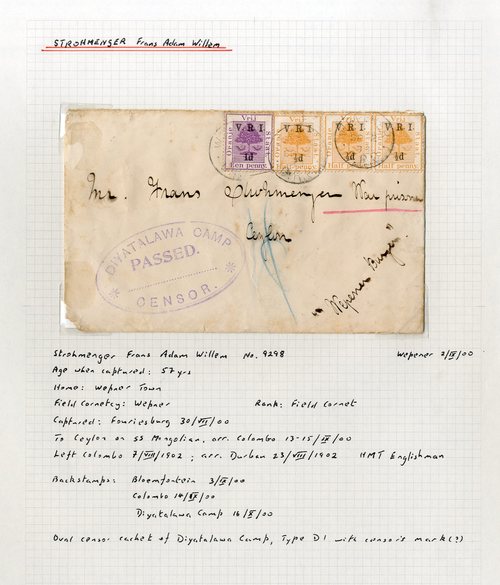 STROHMENGER Frans Adam Willem
Vrij Vrij Vrij Vrij
Oranje Staat
V.R.I. V.R.I. V.R.I. V.R.I.
1d ½d ½d ½d
Een penny. Half penny Half penny Half penny
Mr. Frans Strohmenger War prisoner
Ceylon
"Wepener Burger"
DIYATALAWA CAMP
PASSED.
CENSOR.
Strohmenger Frans Adam Willem No. 9298 Wepener 2/IX/00
Age when captured: 57 yrs
Home: Wepner Town
Field Cornetcy: Wepner Rank: Field Cornet
Captured: Fouriesburg 30/VII/00
To Ceylon on SS Mongolian, arr. Colombo 13-15/IX/00
Left Colombo 7/VIII/1902; arr. Durban 23/VIII/1902 HMT Englishman
Backstamps: Bloemfontein 3/IX/00
Colombo 14/X/00
Diyatalawa Camp 16/X/00
Oval censor cachet of Diyatalawa Camp, Type D1 with censor's mark(?)